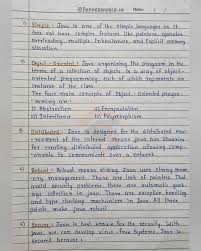 TOPPERWORLD.IN
Date: / /
1) Simple : Java is one of the simple languages as it
does not have complex features like pointers, operator
overloading, multiple inheritances, and Explicit memory
allocation.
2) Object-Oriented : Java organizing the program in the
terms of a collection of objects is a way of object-
oriented programming, each of which represents an
instance of the class.
The four main concepts of Object-Oriented progra-
mming are:
i) Abstraction ii) Encapsulation
iii) Inheritance iv) Polymorphism
3) Distributed : Java is designed for the distributed env-
ironment of the internet.
for creating distributed application
communicate over a network.
4) Robust : Robust means strong. Java uses strong mem-
ory management. There are lack of pointers that
avoid security problems. There are automatic gar-
bage collection in java. There are exception handling
and type checking mechanism in Java. All these
points make java robust.
5) Secure : Java is best known for its security. With
Java, we can develop virus-free systems. Java is
secured because :